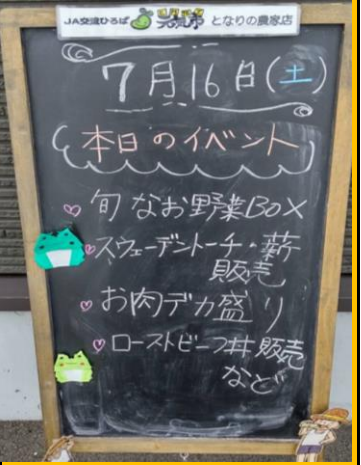 JA交流ひろば となりの農家店
7月16日(土)
本日のイベント
♡ 旬なお野菜BOX
♡ スウェーデントーチ・薪
販売
♡ お肉デカ盛り
♡ ローストビーフ丼販売
など